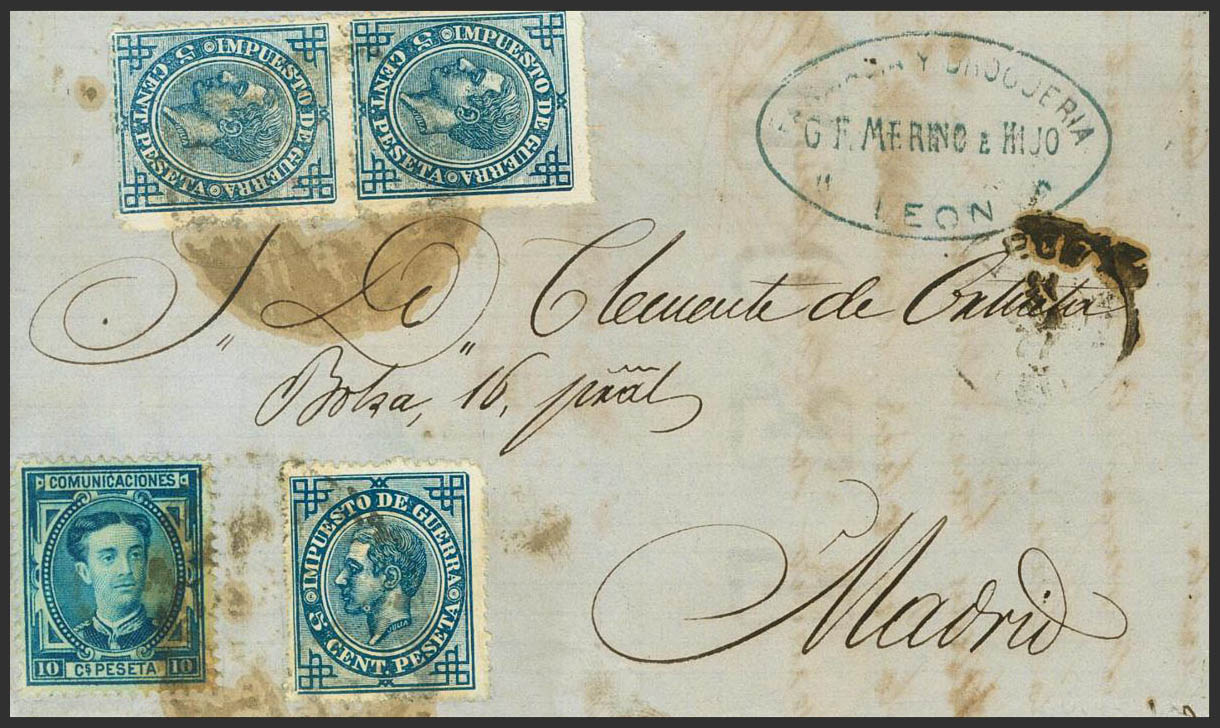 IMPUESTO DE GUERRA
5 CENT. PESETA
IMPUESTO DE GUERRA
5 CENT. PESETA
FARMACIA Y DROGUERIA
G. F. MERINO E HIJO
LEON
S. D. Clemente de
Bolsa, 16, pral
Madrid
COMUNICACIONES
10 Cs PESETA 10
IMPUESTO DE GUERRA
JULIA
5 CENT. PESETA